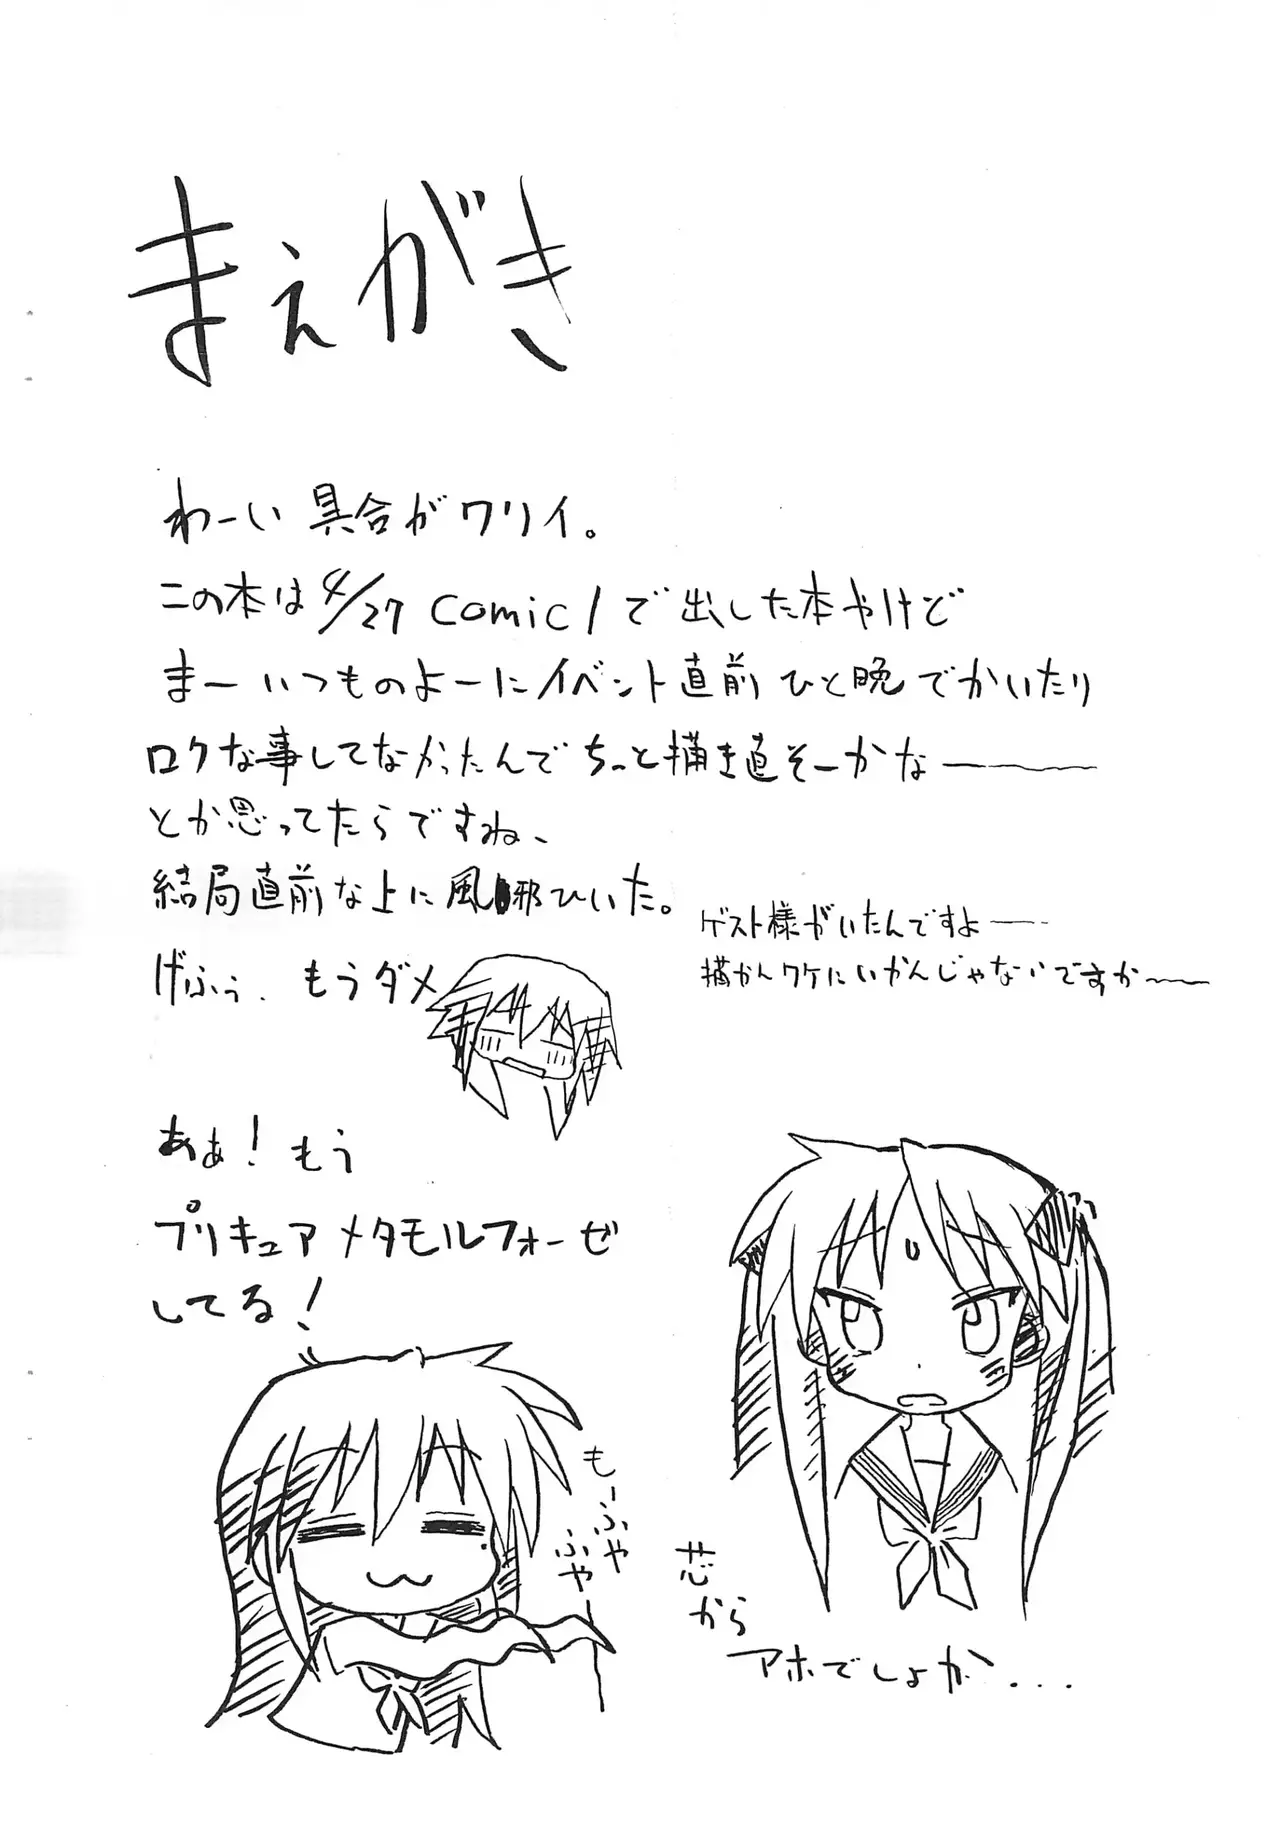 まえがき
わーい 具合がワリイ。
この本は4/27 comic1で出した本やけど
まーいつものよーにイベント直前ひと晩でかいたり
ロクな事してなかったんでちっと描き直そーかなー――
とか思ってたらですね、
結局直前な上に風邪ひいた。
げふぅ、もうダメ
ゲスト様がいたんですよ――
描かんワケにいかんじゃないですか~――
ああ!もう
プリキュアメタモルフォーゼ
してる!
もーふや
ふやー
芯から
アホでしょか...